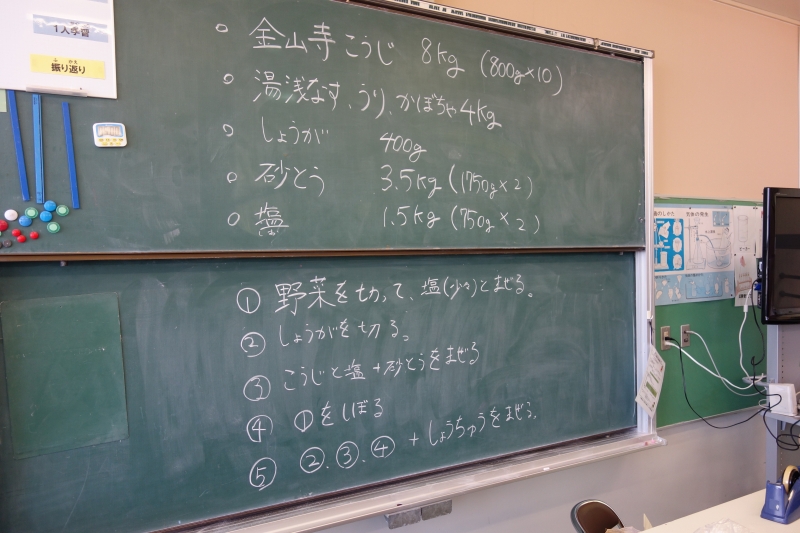 1人学習
ふ かえ
振り返り
○ 金山寺こうじ 8kg (800g×10)
○ 湯浅なす、うり、かぼちゃ 4kg
○ しょうが 400g
○ 砂とう 3.5kg (1750g×2)
○ 塩 1.5kg (750g×2)
しお
① 野菜を切って、塩(少々)とまぜる。
② しょうがを切る。
③ こうじと塩+砂とうをまぜる
④ ①をしぼる
⑤ ②.③.④ +しょうちゅうをまぜる。